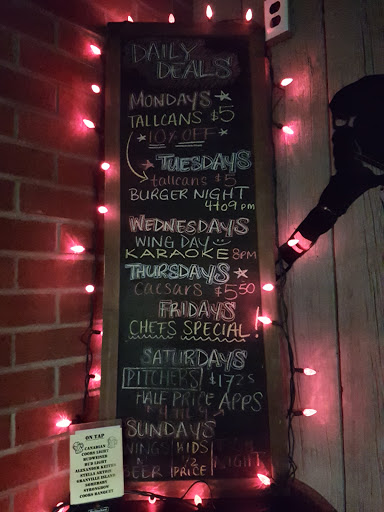 DAILY
DEALS
MONDAYS
TALLCANS $5
10% OFF
TUESDAYS
tallcans $5
BURGER NIGHT
4to9 pm
WEDNESDAYS
WING DAY
KARAOKE 8PM
THURSDAYS
CAESARS $5.50
FRIDAYS
CHEFS SPECIAL!
SATURDAYS
PITCHERS $17.25
HALF PRICE APPS
SUNDAYS
WINGS KIDS
1/2
BEER PRICE NIGHT
ON TAP
CANADIAN
COORS LIGHT
BUDWEISER
BUD LIGHT
ALEXANDER KEITHS
STELLA ARTOIS
GRANVILLE ISLAND
SOMERSBY
STRONGBOW
COORS BANQUET